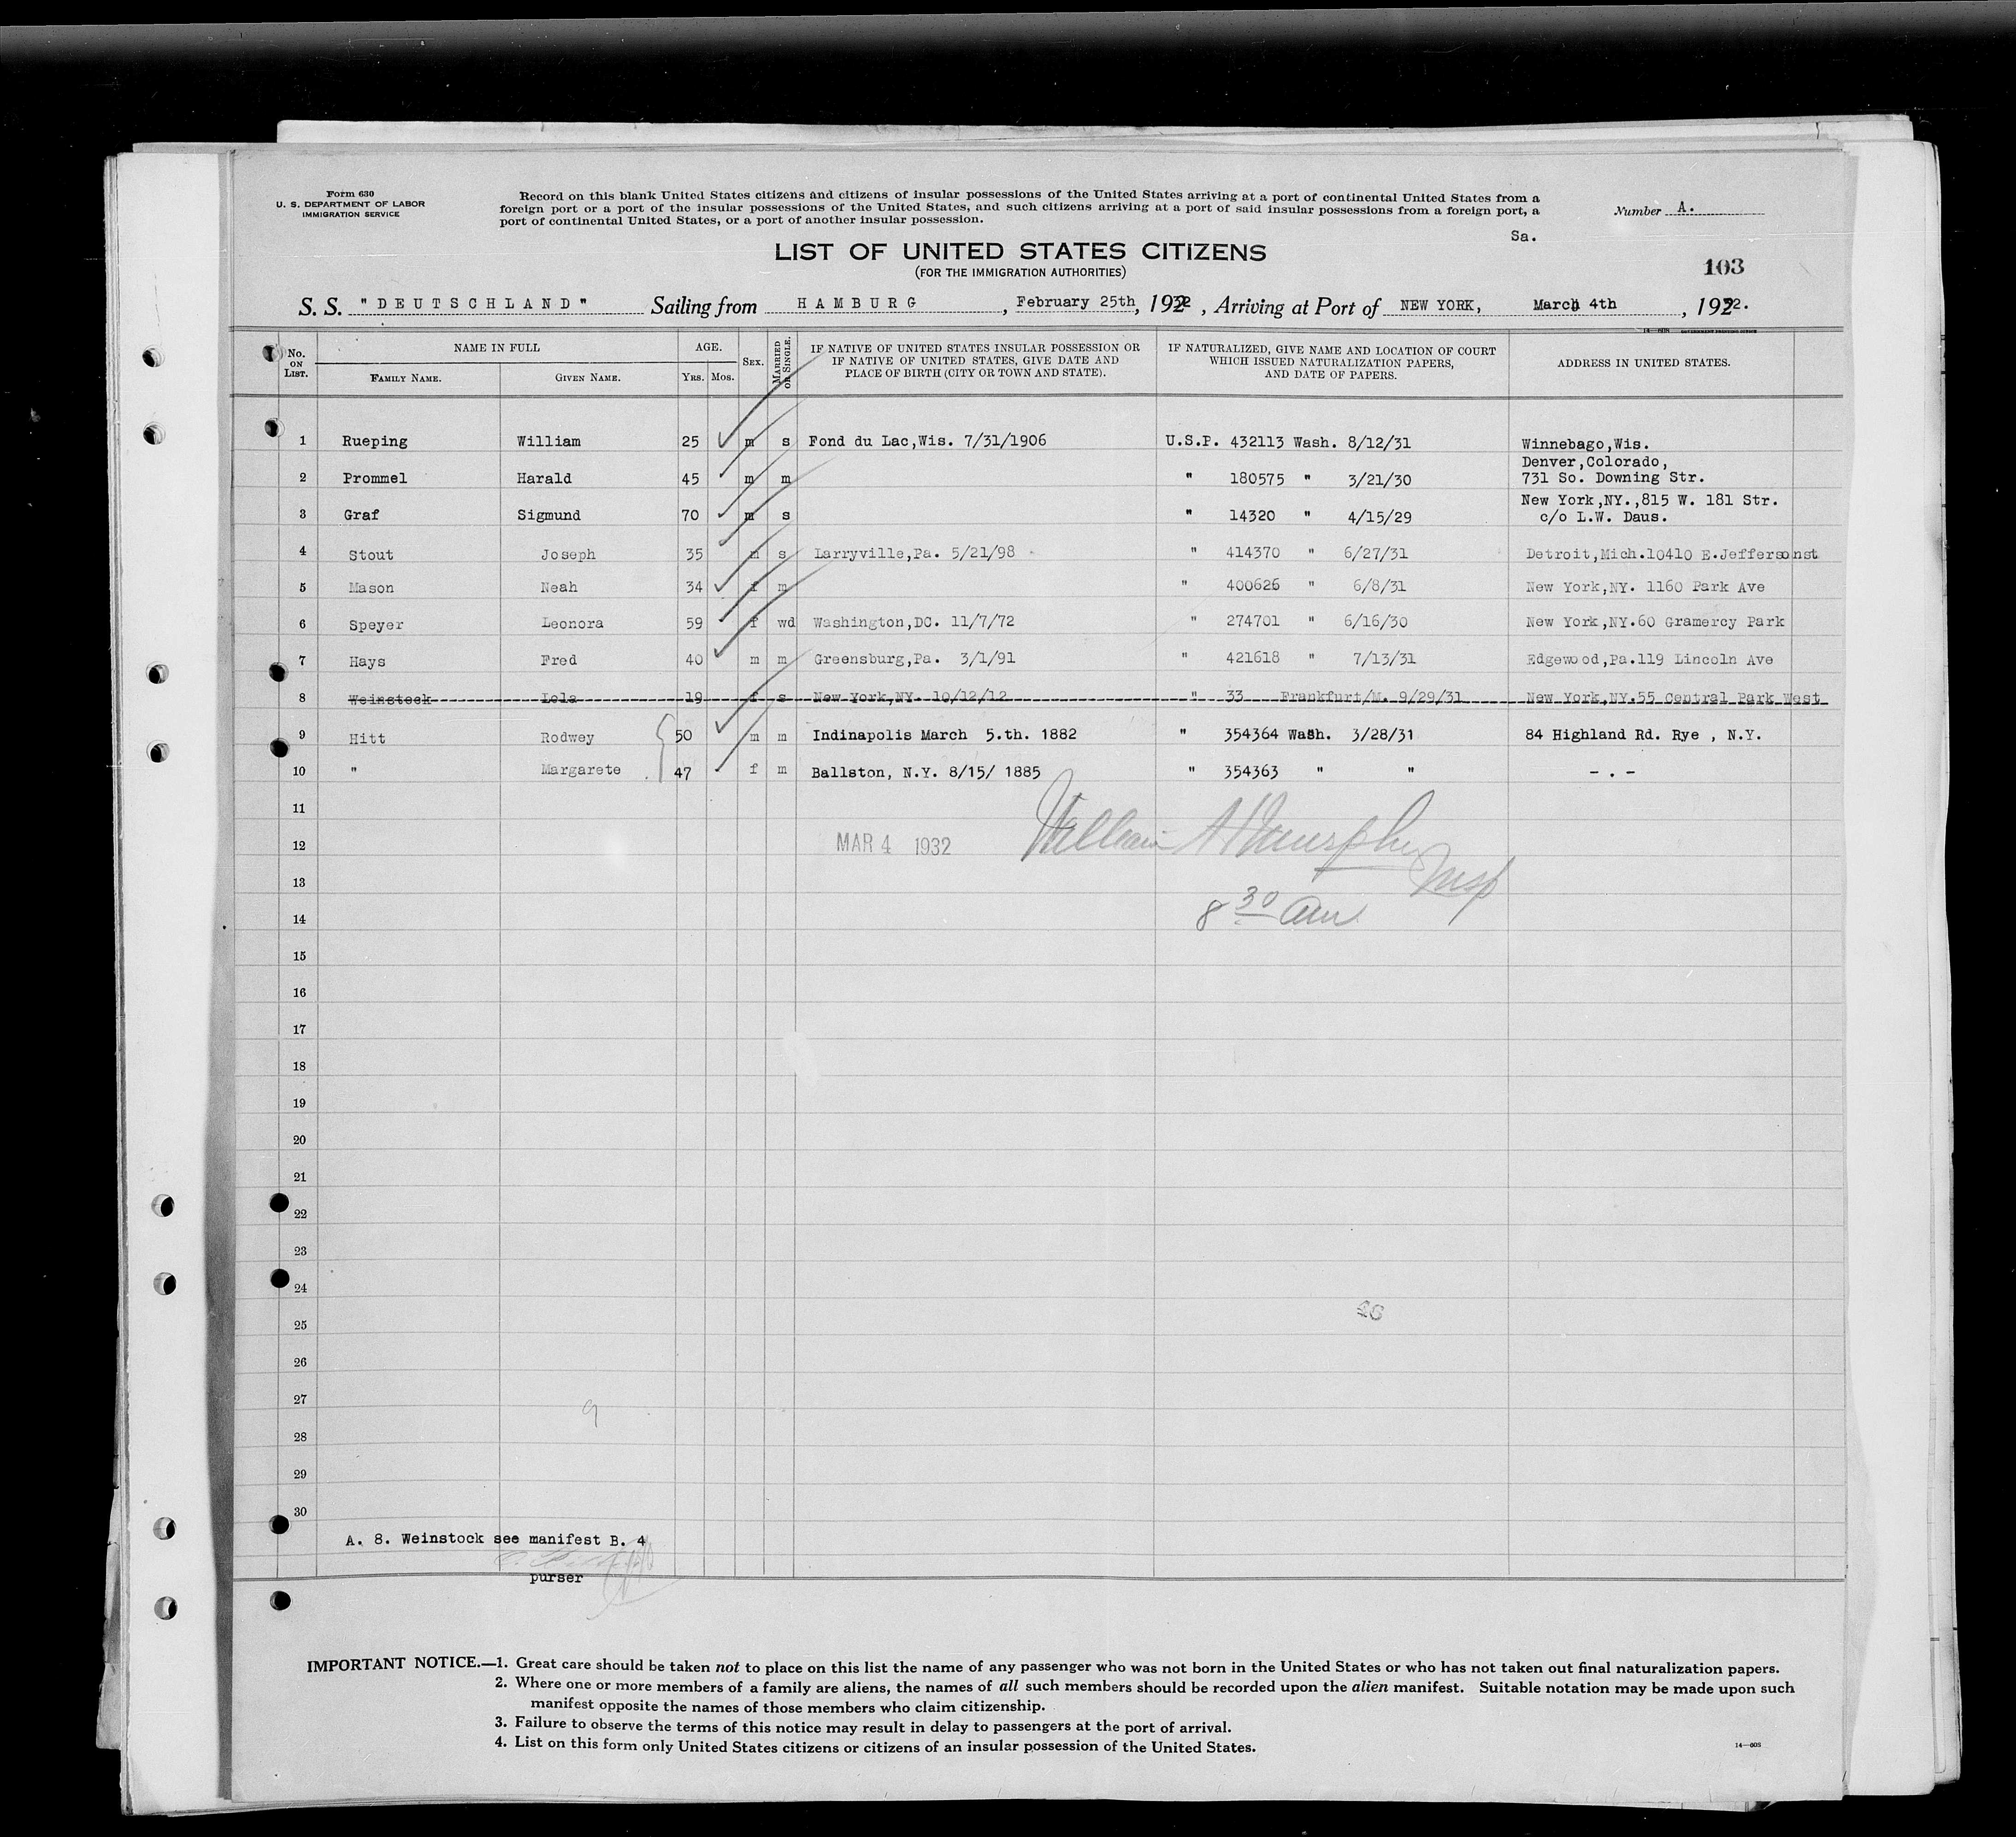 Form 630
U. S. DEPARTMENT OF LABOR
IMMIGRATION SERVICE
Record on this blank United States citizens and citizens of insular possessions of the United States arriving at a port of continental United States from a
foreign port or a port of the insular possessions of the United States, and such citizens arriving at a port of said insular possessions from a foreign port, a
port of continental United States, or a port of another insular possession.
Number A.
Sa.
LIST OF UNITED STATES CITIZENS
(FOR THE IMMIGRATION AUTHORITIES)
103
S. S. "DEUTSCHLAND" Sailing from HAMBURG, February 25th, 1932, Arriving at Port of NEW YORK, March 4th, 1932.
No. ON LIST. NAME IN FULL AGE. SEX. MARRIED OR SINGLE. IF NATIVE OF UNITED STATES INSULAR POSSESSION OR IF NATIVE OF UNITED STATES, GIVE DATE AND PLACE OF BIRTH (CITY OR TOWN AND STATE). IF NATURALIZED, GIVE NAME AND LOCATION OF COURT WHICH ISSUED NATURALIZATION PAPERS, AND DATE OF PAPERS. ADDRESS IN UNITED STATES.
FAMILY NAME. GIVEN NAME. YRS. MOS.
1 Rueping William 25 m s Fond du Lac,Wis. 7/31/1906 U.S.P. 432113 Wash. 8/12/31 Winnebago,Wis.
Denver,Colorado,
2 Prommel Harald 45 m m " 180575 " 3/21/30 731 So. Downing Str.
New York,NY.,815 W. 181 Str.
3 Graf Sigmund 70 m s " 14320 " 4/15/29 c/o L.W. Daus.
4 Stout Joseph 35 m s Larryville,Pa. 5/21/98 " 414370 " 6/27/31 Detroit,Mich.10410 E.Jeffersonst
5 Mason Neah 34 f m " 400626 " 6/8/31 New York,NY. 1160 Park Ave
6 Speyer Leonora 59 f wd Washington,DC. 11/7/72 " 274701 " 6/16/30 New York,NY.60 Gramercy Park
7 Hays Fred 40 m m Greensburg,Pa. 3/1/91 " 421618 " 7/13/31 Edgewood,Pa.119 Lincoln Ave
8 Weinstock Lola 19 f s New York,NY. 10/12/12 " 33 Frankfurt/M. 9/29/31 New York,NY.55 Central Park West
9 Hitt Rodwey 50 m m Indinapolis March 5.th. 1882 " 354364 Wash. 3/28/31 84 Highland Rd. Rye , N.Y.
10 " Margarete 47 f m Ballston, N.Y. 8/15/ 1885 " 354363 " " - . -
11
12 MAR 4 1932 William A Murphy
13 Insp
14 8 30 am
15
16
17
18
19
20
21
22
23
24
25
26
27 9
28
29
30
A. 8. Weinstock see manifest B. 4
purser
IMPORTANT NOTICE.—1. Great care should be taken not to place on this list the name of any passenger who was not born in the United States or who has not taken out final naturalization papers.
2. Where one or more members of a family are aliens, the names of all such members should be recorded upon the alien manifest. Suitable notation may be made upon such
manifest opposite the names of those members who claim citizenship.
3. Failure to observe the terms of this notice may result in delay to passengers at the port of arrival.
4. List on this form only United States citizens or citizens of an insular possession of the United States.